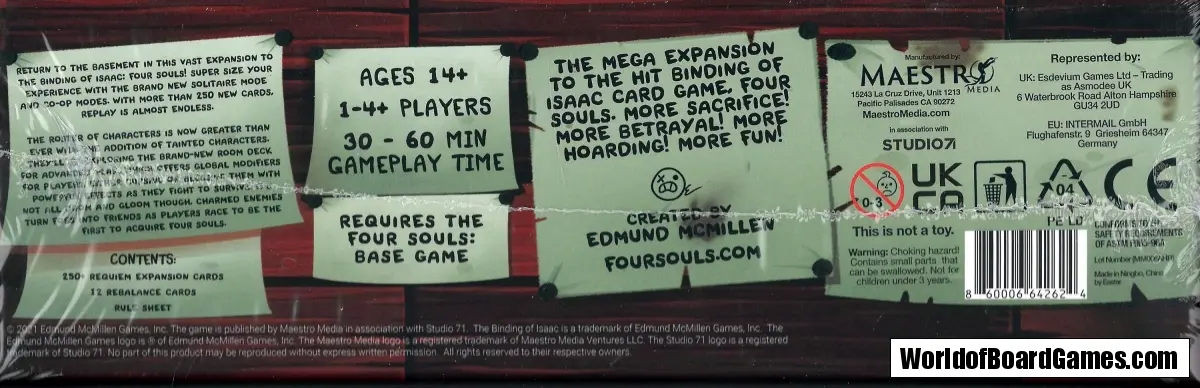 RETURN TO THE BASEMENT IN THIS VAST EXPANSION TO
THE BINDING OF ISAAC: FOUR SOULS! SUPER SIZE YOUR
EXPERIENCE WITH THE BRAND NEW SOLITAIRE MODE
AND CO-OP MODES. WITH MORE THAN 250 NEW CARDS,
REPLAY IS ALMOST ENDLESS.
THE ROSTER OF CHARACTERS IS NOW GREATER THAN
EVER WITH THE ADDITION OF TAINTED CHARACTERS.
THEY'LL BE EXPLORING THE BRAND-NEW ROOM DECK
FOR ADVANCED PLAY, WHICH OFFERS GLOBAL MODIFIERS
FOR PLAYERS, EITHER CURSING OR BLESSING THEM WITH
POWERFUL EFFECTS AS THEY FIGHT TO SURVIVE.
NOT ALL DOOM AND GLOOM THOUGH. CHARMED ENEMIES
TURN FOES INTO FRIENDS AS PLAYERS RACE TO BE THE
FIRST TO ACQUIRE FOUR SOULS.
CONTENTS:
250+ REQUIEM EXPANSION CARDS
12 REBALANCE CARDS
RULE SHEET
AGES 14+
1-4+ PLAYERS
30 - 60 MIN
GAMEPLAY TIME
REQUIRES THE
FOUR SOULS:
BASE GAME
THE MEGA EXPANSION
TO THE HIT BINDING OF
ISAAC CARD GAME, FOUR
SOULS. MORE SACRIFICE!
MORE BETRAYAL! MORE
HOARDING! MORE FUN!
CREATED BY
EDMUND MCMILLEN
FOURSOULS.COM
Manufactured by:
MAESTRO
MEDIA
15243 La Cruz Drive, Unit 1213
Pacific Palisades CA 90272
MaestroMedia.com
in association with
STUDIO71
Represented by:
UK: Esdevium Games Ltd – Trading
as Asmodee UK
6 Waterbrook Road Alton Hampshire
GU34 2UD
EU: INTERMAIL GmbH
Flughafenstr. 9 Griesheim 64347
Germany
0-3
UK
CA
04
PE LD
CE
This is not a toy.
Warning: Choking hazard!
Contains small parts that
can be swallowed. Not for
children under 3 years.
8 60006 64262 4
CONFORMS TO THE
SAFETY REQUIREMENTS
OF ASTM F963-96A
Made in Ningbo, China
by Eastar
© 2021 Edmund McMillen Games, Inc. The game is published by Maestro Media in association with Studio 71. The Binding of Isaac is a trademark of Edmund McMillen Games, Inc. The
Edmund McMillen Games logo is ® of Edmund McMillen Games, Inc. The Maestro Media logo is a registered trademark of Maestro Media Ventures LLC. The Studio 71 logo is a registered
trademark of Studio 71. No part of this product may be reproduced without express written permission. All rights reserved to their respective owners.
WorldofBoardGames.com